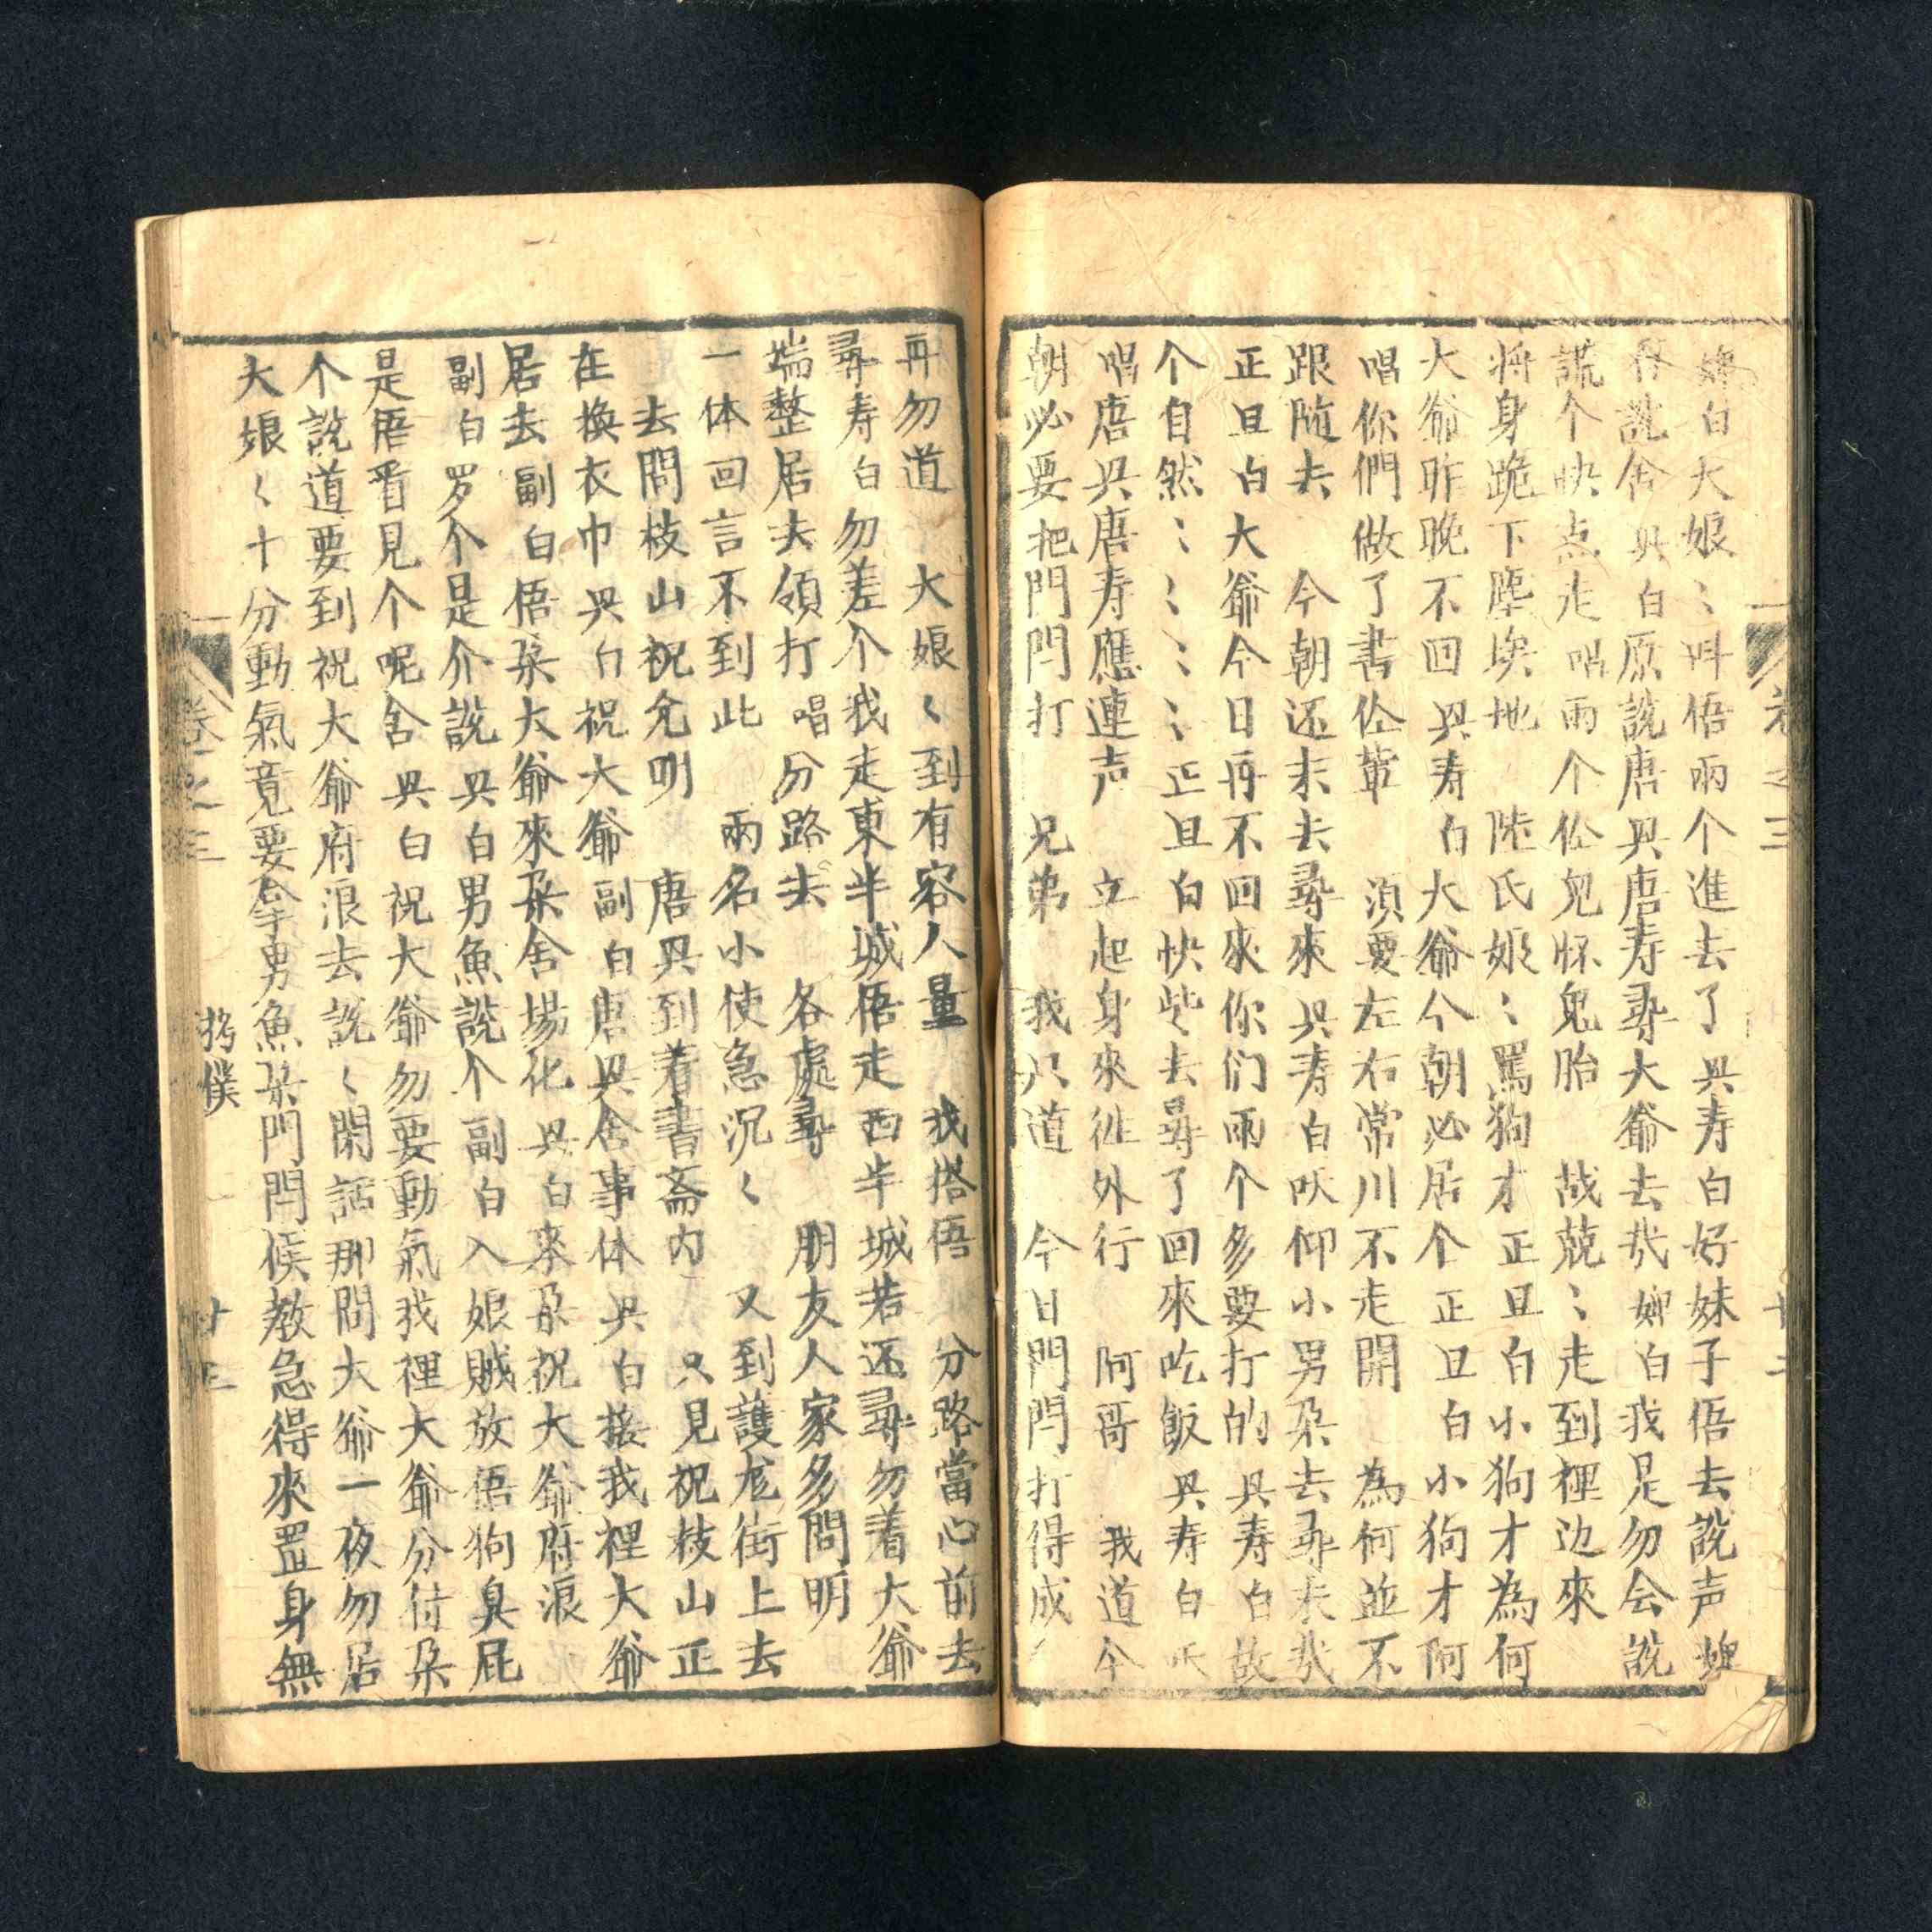 婢白大娘〻呌俉兩个進去了 㒷寿白好妹子俉去說声 婢
白說舍 㒷白原說唐㒷唐寿尋大爺去哉 婢白我是勿会說
謊个快点走 唱兩个伀兒怀鬼胎 战兢〻走到裡边來
将身跪下塵埃地 陸氏娘〻罵狗才 正旦白小狗才為何
大爺昨晚不回 㒷寿白大爺个朝必居个 正旦白小狗才阿
唱你們做了書伀輩 湏要左右常川不走開 為何並不
跟隨去 今朝还未去尋來 㒷寿白呅仰小男朶去尋末哉
正旦白大爺今日再不回來你们兩个多要打的 㒷寿白故
个自然〻〻〻〻 正旦白快些去尋了回來吃飯 㒷寿白
唱唐㒷唐寿應連声 立起身來徃外行 阿哥 我道今
朝必要把門閂打 兄弟 我只道 今日門閂打得成
卷之三
廿二
再勿道 大娘〻到有容人量 我搭俉 分路當心前去
尋 寿白勿差个我走東半城俉走西半城若还尋勿着大爺
端整居去領打 唱分路去 各處尋 朋友人家多問明
一体回言不到此 兩名小使急沉〻 又到護龙街上去
去問枝山祝允明 唐㒷到着書斋内 只見祝枝山正
在換衣巾 㒷白祝大爺 副白唐㒷舍事体 㒷白接我裡大爺
居去 副白俉朶大爺來朶舍場化 㒷白來朶祝大爺府浪
副白罗个是介說 㒷白男魚說个 副白入娘賊放俉狗臭屁
是俉看見个呢舍 㒷白祝大爺勿要動氣我裡大爺分付朶
个說道要到祝大爺府浪去說〻閑話那間大爺一夜勿居
大娘〻十分動氣竟要拿男魚朶門閂候教急得來罡身無
卷之三
廿三